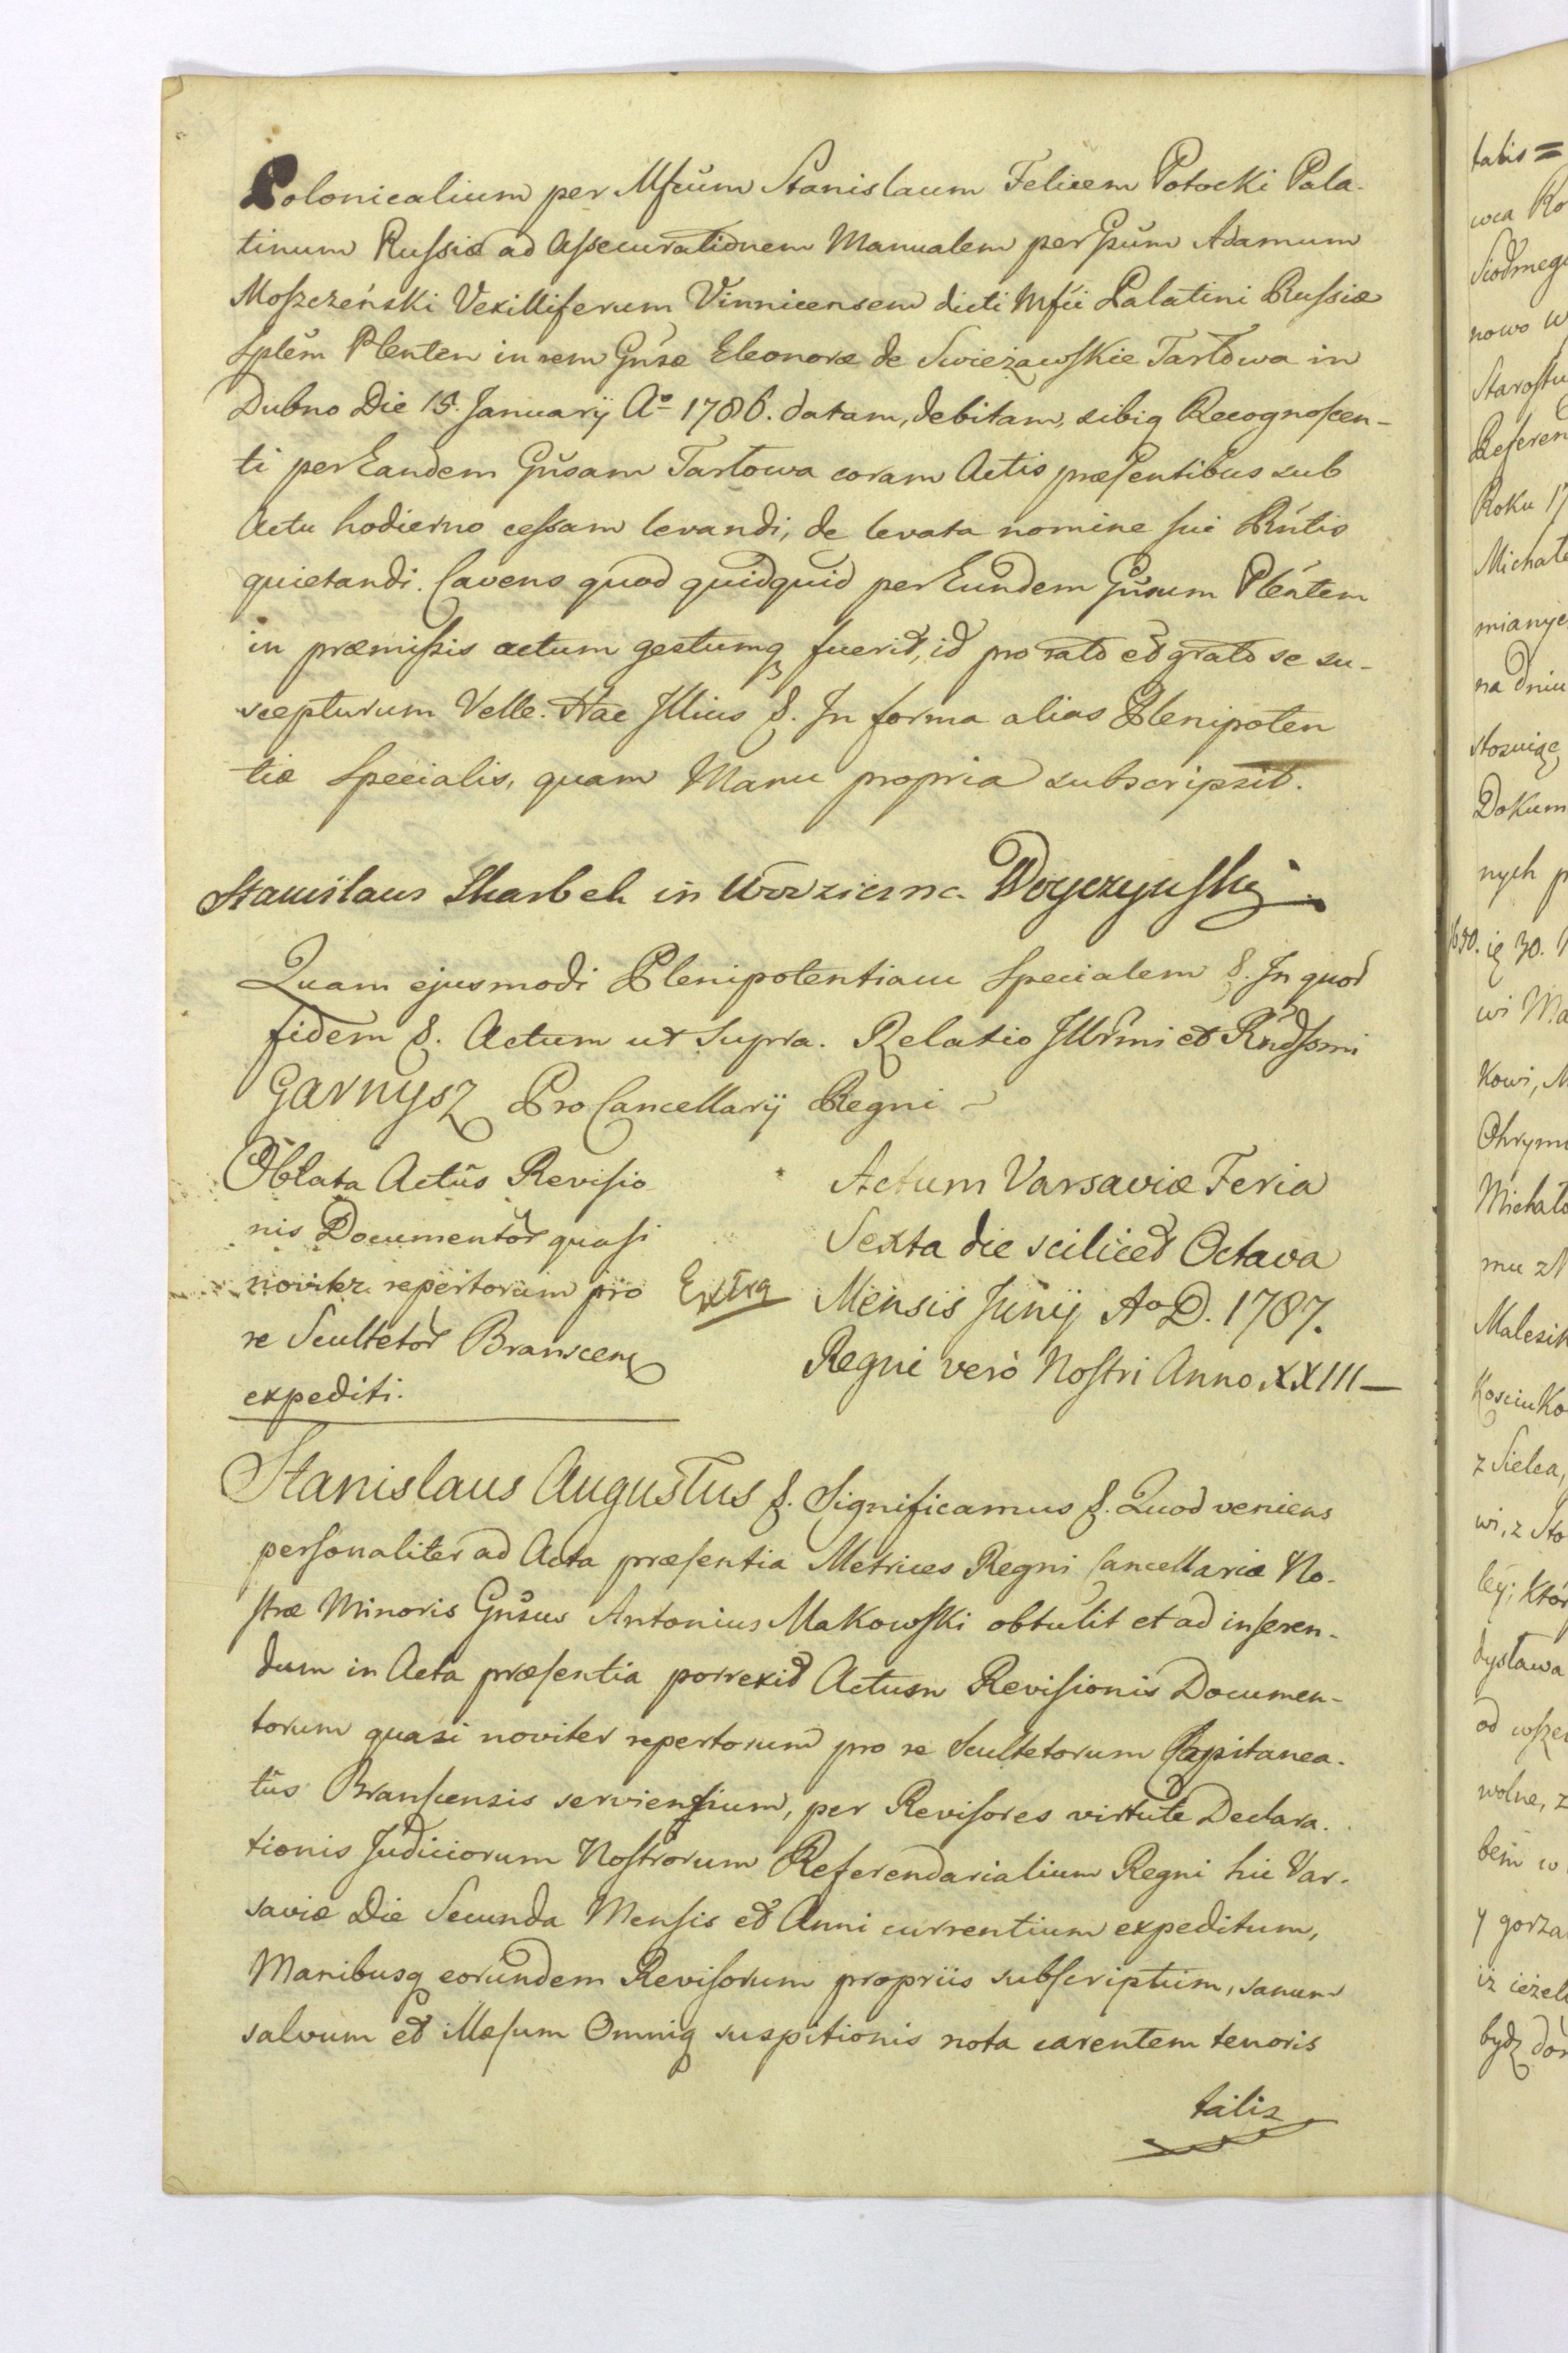 Polonicalium per Mfcum Stanislaum Felicem Potocki Pala-
tinum Russiæ ad Assecurationem Manualem per Gsum Adamum
Moszczeński Vexilliferum Vinnicensem dicti Mfci Palatini Russiæ
Splem Plenten in rem Gnsæ Eleonoræ de Swieżawskie Tarłowa in
Dubno Die 15. Januarij Aº 1786. datam, debitam, sibiq Recognoscen-
ti per Eandem Gnsam Tarłowa coram Actis præsentibus sub
Actu hodierno cessam levandi, de levata nomine sui Rntis
quietandi. Cavens quod quidquid per Eundem Gnsum Plentem
in præmissis actum gestumq fuerit, id pro rato et grato se su-
scepturum Velle. Hac Illius &. In forma alias Plenipoten
tiæ Specialis, quam Manu propria subscripsit.
Stanislaus Skarbek in Woyczyński
Quam ejusmodi Plenipotentiam Specialem &. In quor
fidem &. Actum ut supra. Relatio Illrmi et Rndssmi
Garnysz Pro Cancellarij Regni
Oblata Actûs Revisio
nis Documentor quasi
noviter repertorum pro
re Scultetor Branscen
expediti.
Extra
Actum Varsaviæ Feria
Sexta die scilicet Octava
Mensis Junij Ao D. 1787.
Regni verò Nostri Anno XXIII
Stanislaus Augustus &. Significamus &. Quod veniens
personaliter ad Acta præsentia Metrices Regni Cancellariæ No-
stræ Minoris Gnsus Antonius Makowski obtulit et ad inseren-
dum in Acta præsentia porrexit Actum Revisionis Documen-
torum quasi noviter repertorum pro re Scultetorum Capitanea-
tûs Branscensis servientium, per Revisores virtute Declara-
tionis Judiciorum Nostrorum Referendarialium Regni hic Var-
saviæ Die Secunda Mensis et Anni currentium expeditum,
Manibusq eorundem Revisorum propriis subscriptum, sanum
salvum et illæsum Omniq suspitionis nota carentem tenoris
talis
talis =
wca Ro
Siodmeg
nowo w
Starostw
Referen
Roku 17
Michał
mianye
na dniu
stosuiąc
Dokum
nych p
ię 30.
wi Ma
Kowi, M
Ohrym
Michał
mu z
Malesik
Kosciuko
z Sielca,
wi, z Sto
ley; Któr
dysława
od wszel
wolne, z
bem w
y gorza
iz ieżel
bydz dob